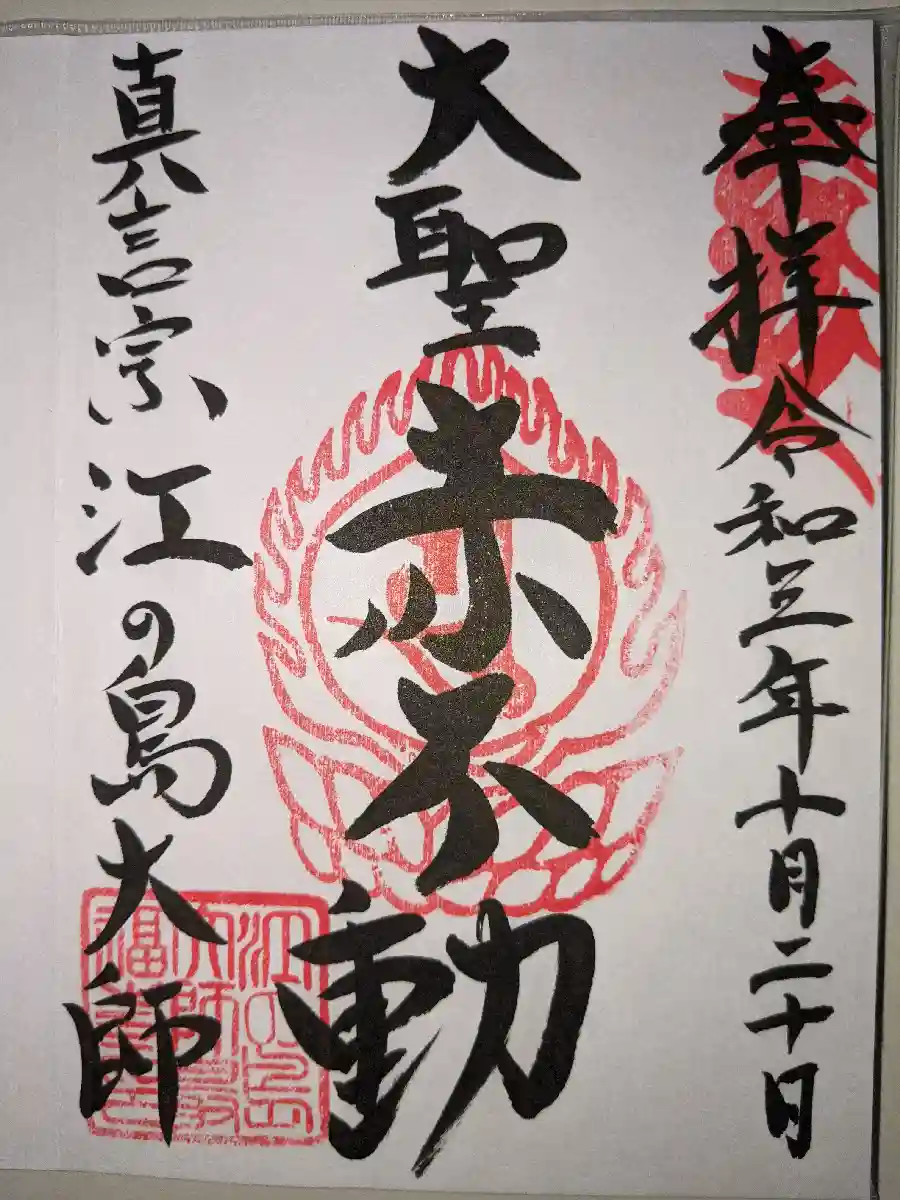 奉拝 令和三年十月二十日
大聖赤不動
真言宗 江の島大師